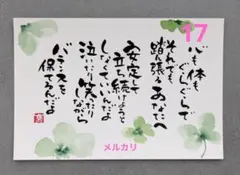 17
心も体も
ぐらぐらで
それでも
踏ん張るあなたへ
安定して
立ち続けようと
しなくていいんだよ
泣いたり笑ったり
しながら
バランスを
保てるんだよ
メルカリ